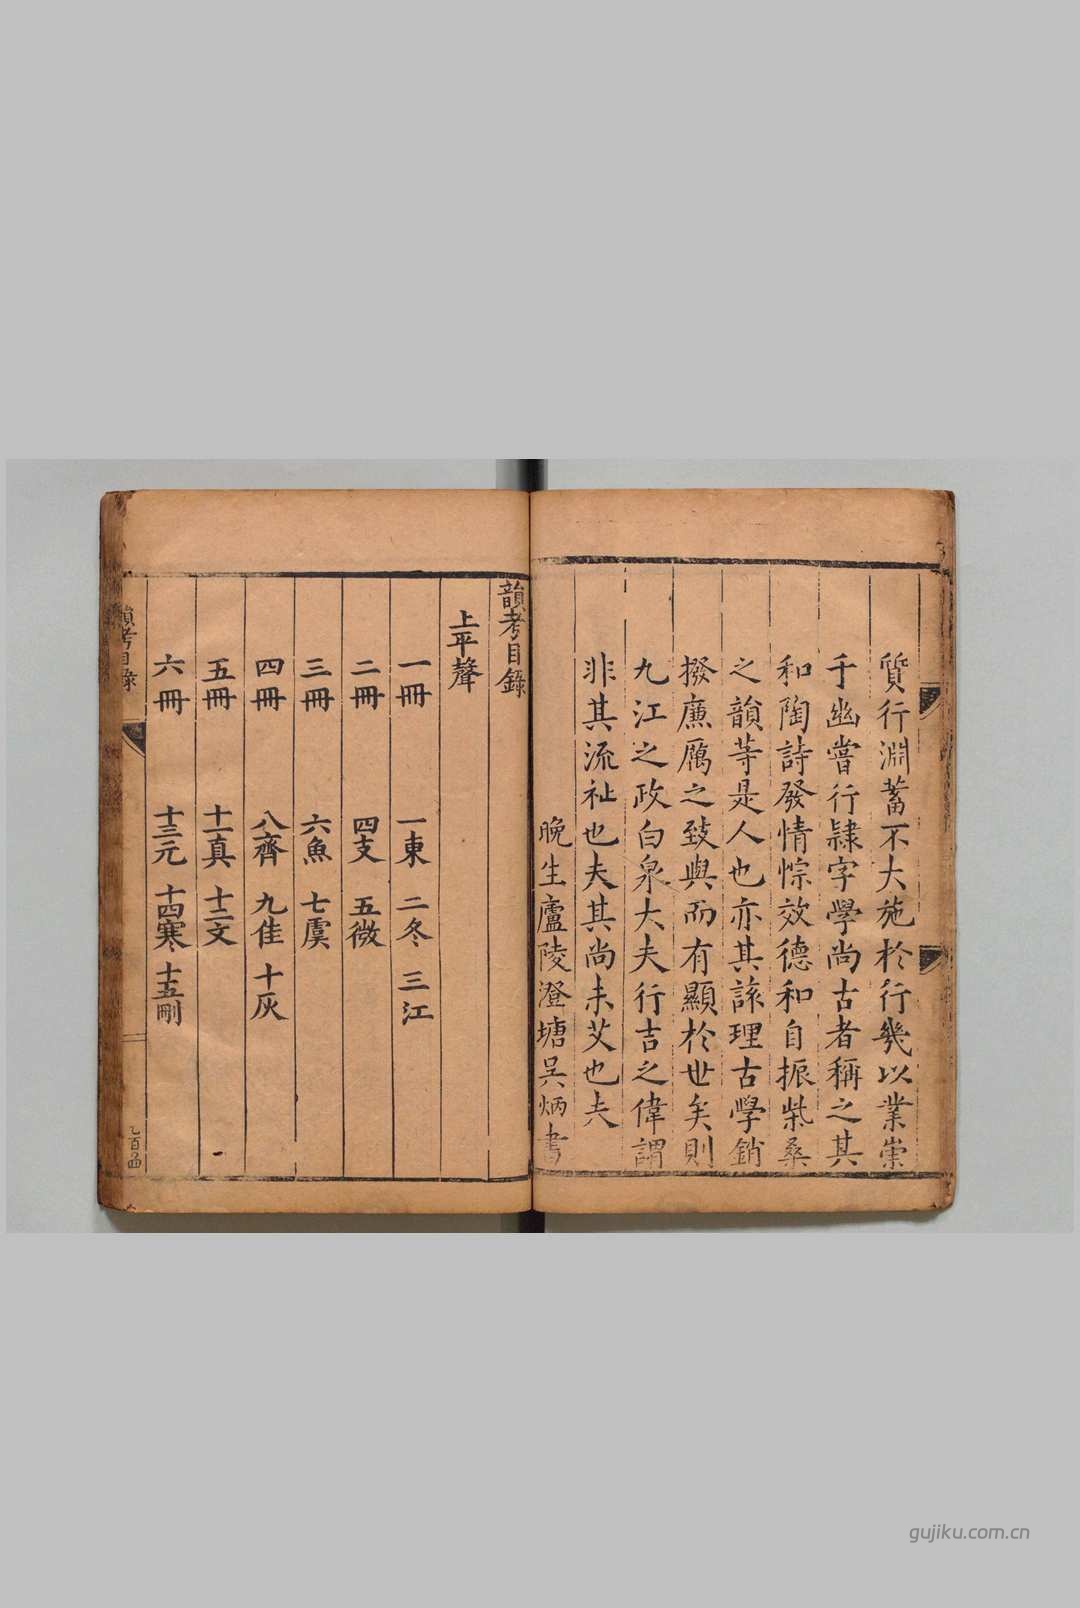 質行淵蓄不大施於行幾以業崇
千幽嘗行隷字學尚古者稱之其
和陶詩發情悰效德和自振柴桑
之韻等是人也亦其該理古學銷
撥廉厲之致與而有顯於世矣則
九江之政白泉大夫行吉之偉謂
非其流祉也夫其尚未艾也夫
晚生廬陵澄塘吴炳書
韻考目錄
上平聲
一冊 一東 二冬 三江
二冊 四支 五微
三冊 六魚 七虞
四冊 八齊 九佳 十灰
五冊 十一真 十二文
六冊 十三元 十四寒 十五刪
韻考目錄
gujiku.com.cn